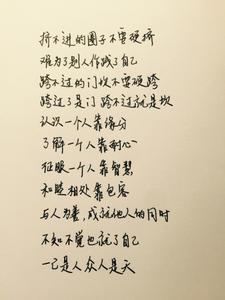 挤不进的圈子不要硬挤
难为了别人作贱了自己
跨不过的门坎不要硬跨
跨过了是门 跨不过就是坎
认识一个人靠缘分
了解一个人靠耐心
征服一个人靠智慧
和睦相处靠包容
与人为善,成就他人的同时
不知不觉也就了自己
一己是人众人是天